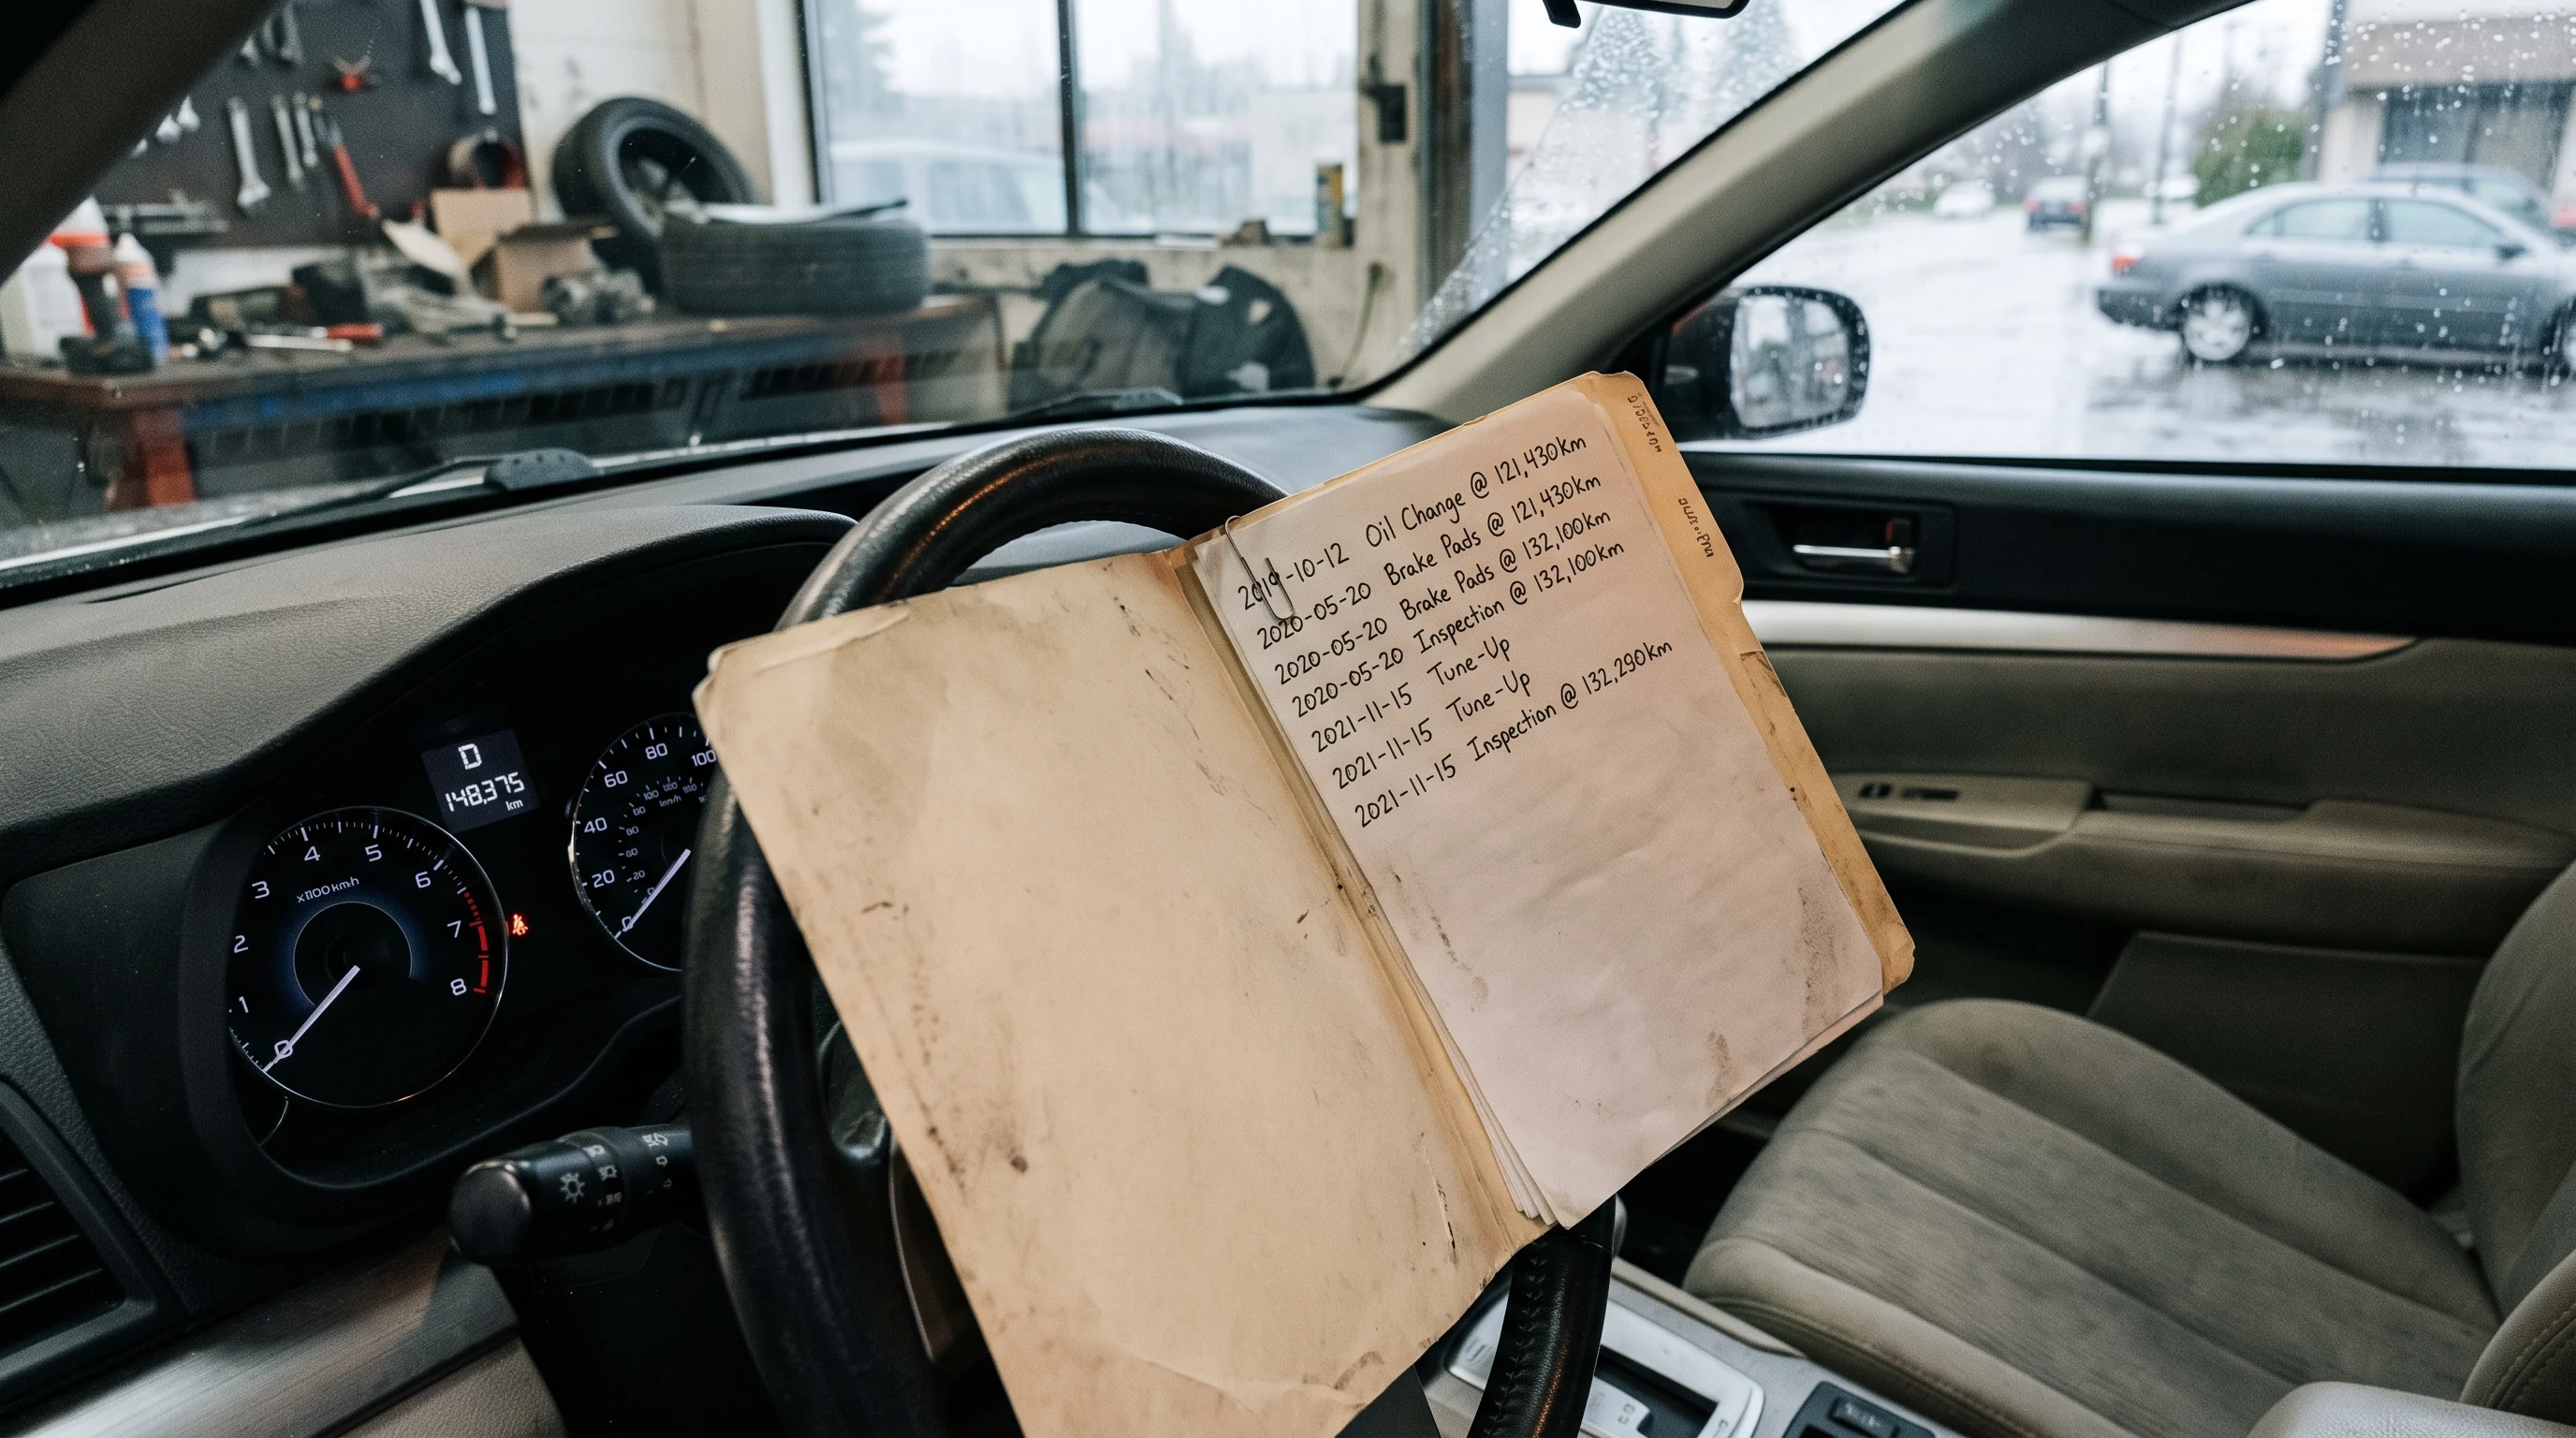 D
148,375
km
3
4
5
6
7
8
2
1
0
20
40
60
80
100
0
2019-10-12 Oil Change @ 121,430km
2020-05-20 Brake Pads @ 121,430km
2020-05-20 Brake Pads @ 132,100km
2020-05-20 Inspection @ 132,100km
2021-11-15 Tune-Up
2021-11-15 Tune-Up
2021-11-15 Inspection @ 132,290km